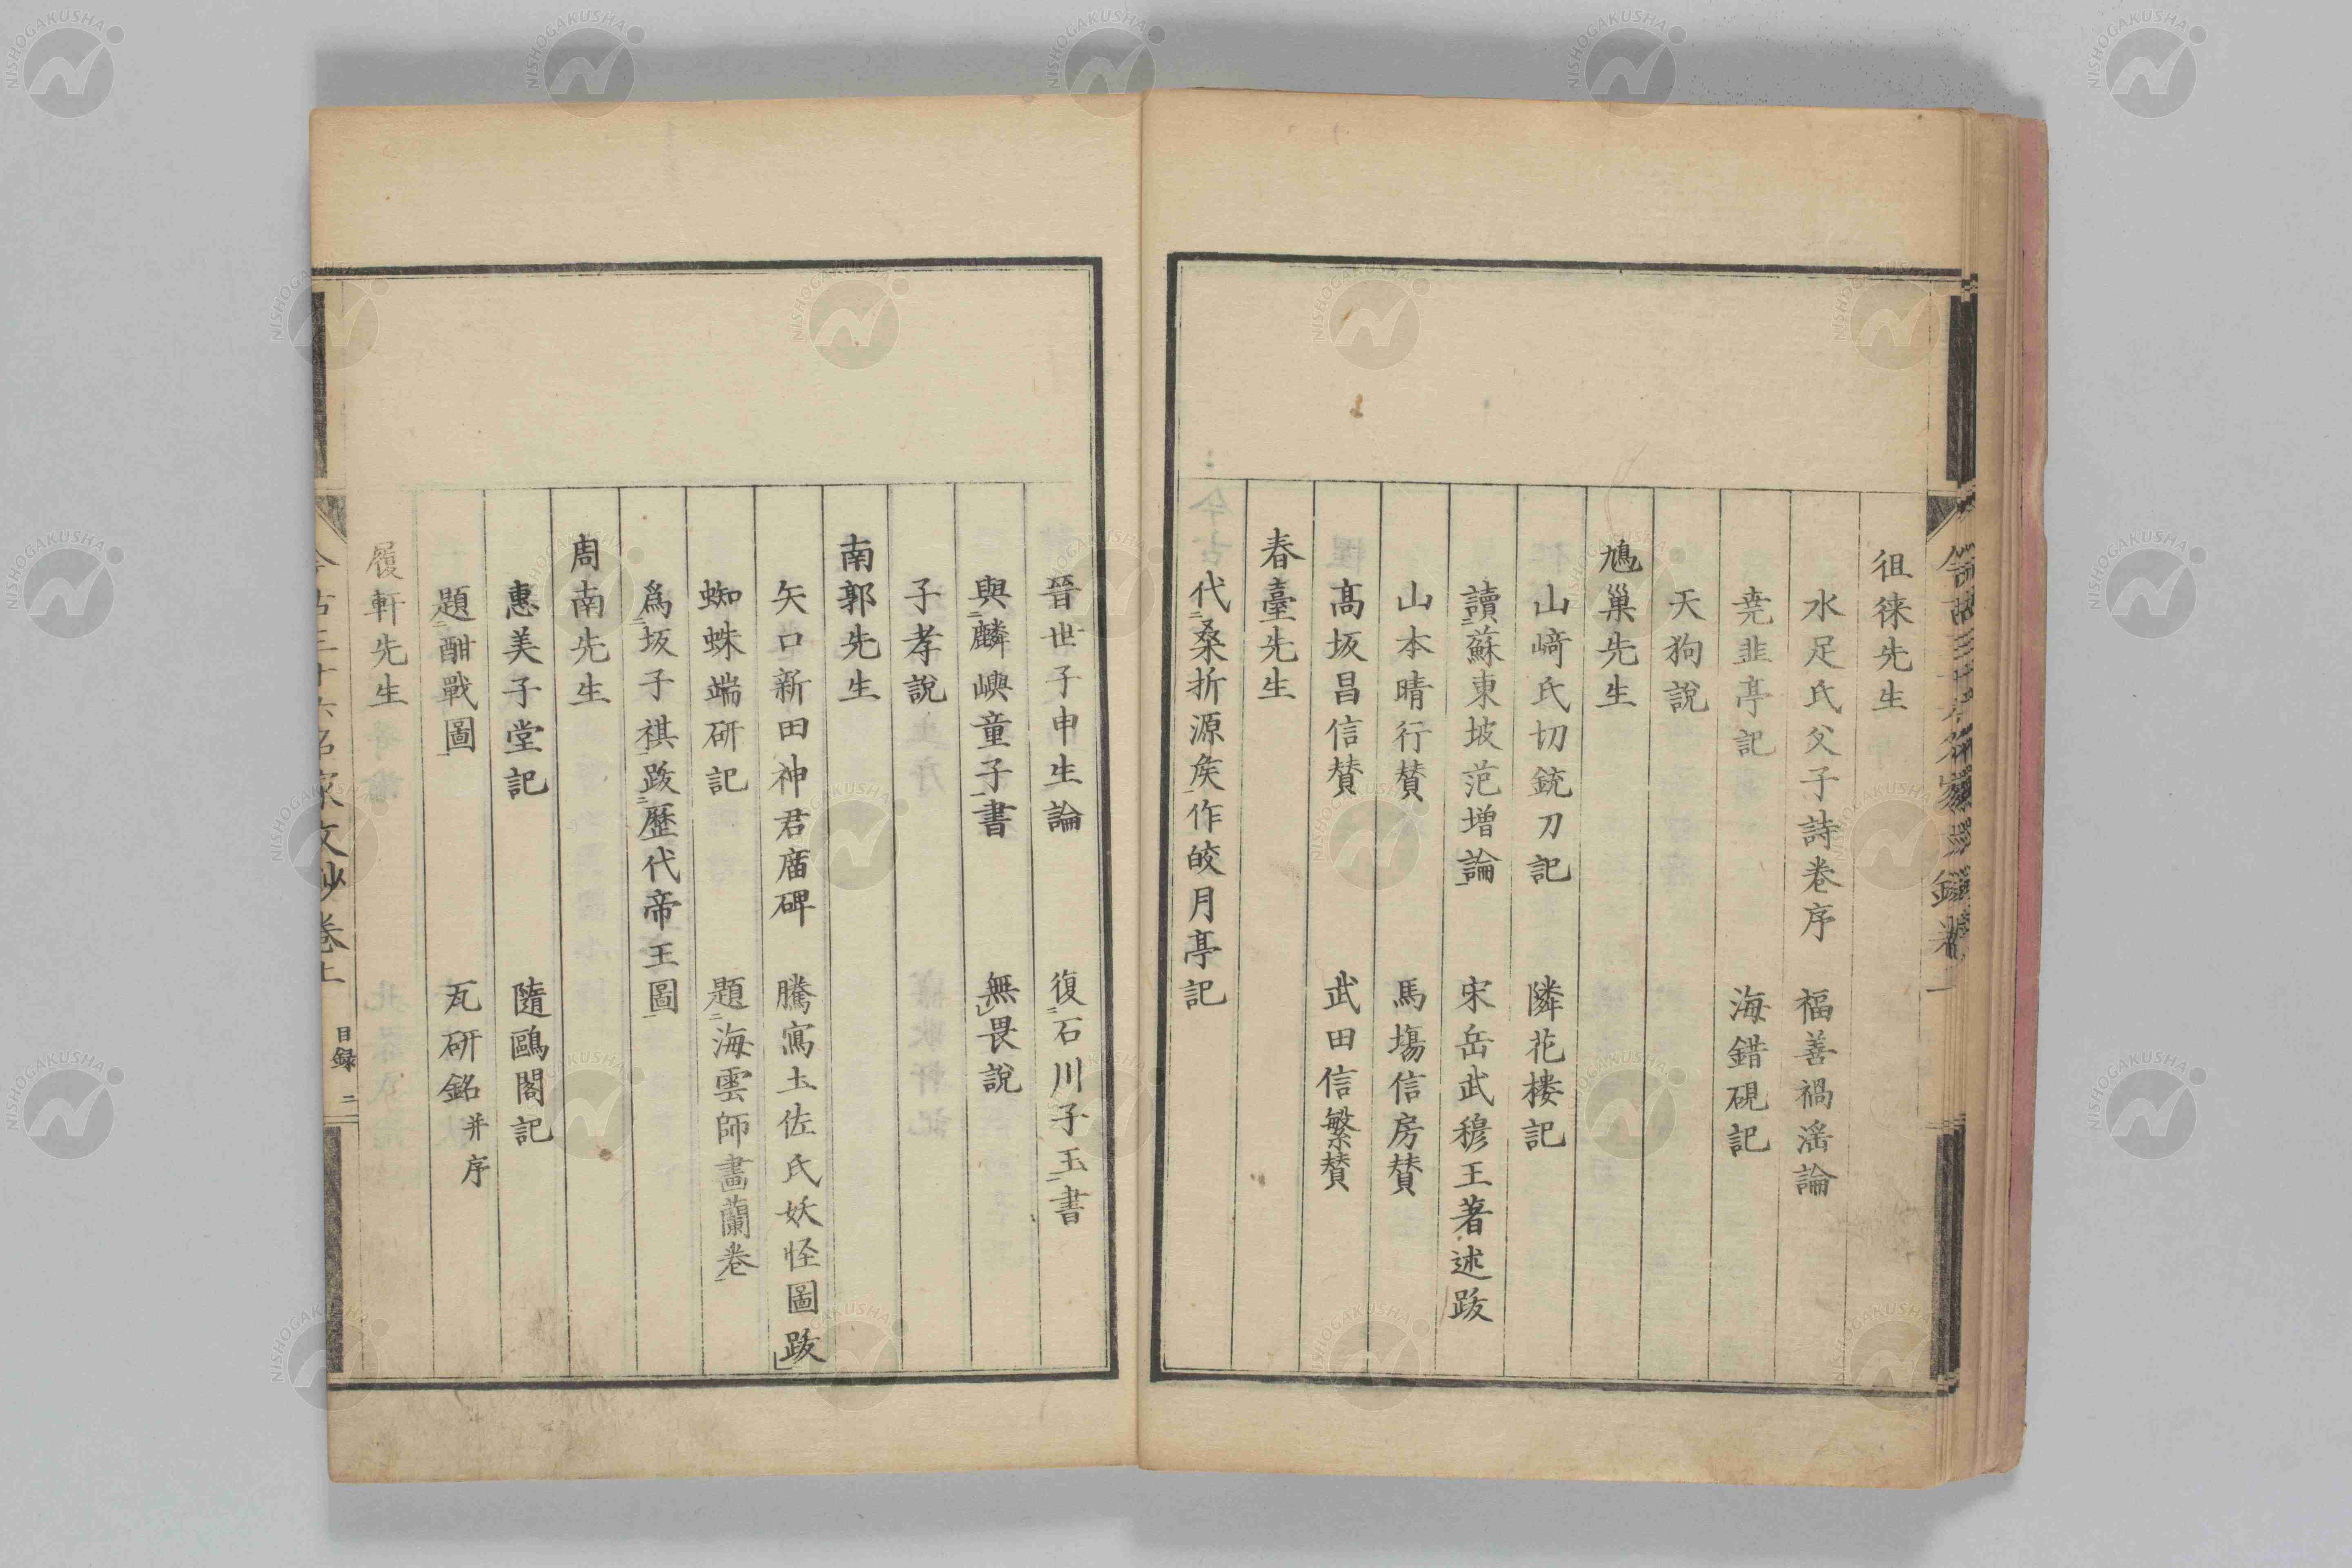 徂徠先生
水足氏父子詩卷序　福善禍淫論
堯韭亭記　海錯硯記
天狗說
鳩巢先生
山﨑氏切銃刀記　隣花樓記
讀蘇東坡范增論　宋岳武穆王著述跋
山本晴行賛　馬塲信房賛
髙坂昌信賛　武田信繁賛
春臺先生
代桑折源矦作皎月亭記
晉世子申生論　復石川子玉書
與麟嶼童子書　無畏說
子孝說
南郭先生
矢口新田神君庿碑　騰寫土佐氏妖怪圖跋
蜘蛛端研記　題海雲師畫蘭卷
爲坂子祺跋歷代帝王圖
周南先生
惠美子堂記　隨鷗閣記
題酣戰圖　瓦研銘并序
履軒先生
今古三十六名家文鈔卷上　目録　二
NISHOGAKUSHA